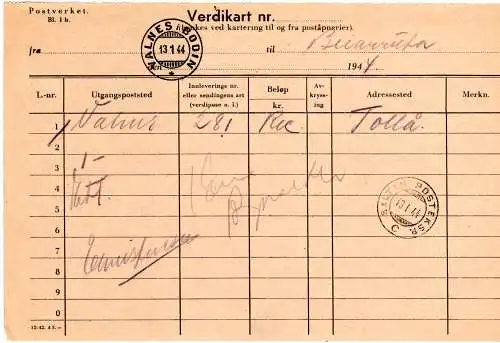 Postverket.
Bl. 1 b.
Verdikart nr.
VALNES BODIN
13 1 44
kes ved kartering til og fra poståpnerier).
fra
til Beiarruta
den
194 4.
L.-nr.
Utgangspoststed
Innleverings nr. eller sendingens art (verdipose o. l.)
Beløp
kr.
Av-kryss-ing
Adressested
Merkn.
1 Valnes 281 Rec Tollå.
2
3 1-
4
5
6
7
8
9
0
SALTEN POSTEKSP.
13 1 44
C
12-42. 4 5.—